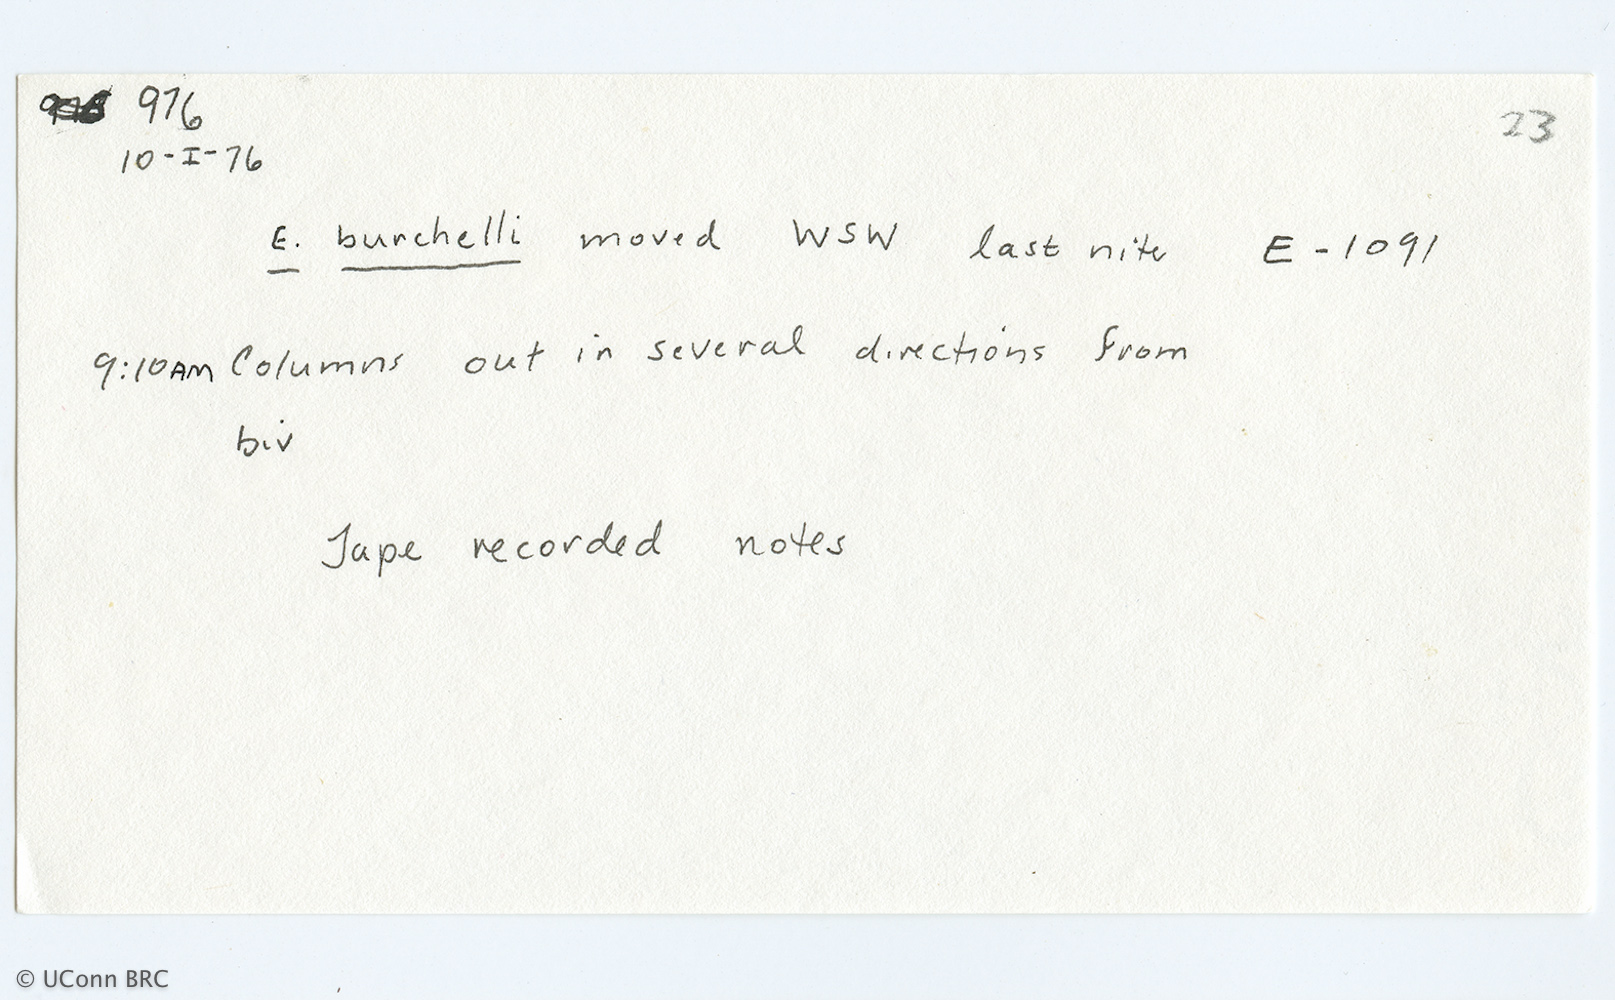 976
23
10-I-76
E. burchelli moved WSW last nite E-1091
9:10AM Columns out in several directions from
biv
Tape recorded notes
© UConn BRC